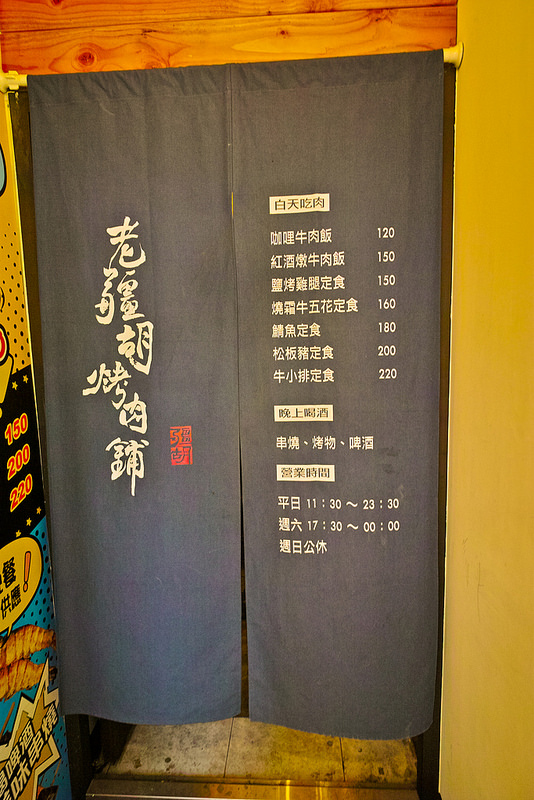 老疆胡烤肉舖
疆胡
白天吃肉
咖哩牛肉飯 120
紅酒燉牛肉飯 150
鹽烤雞腿定食 150
燒霜牛五花定食 160
鯖魚定食 180
松板豬定食 200
牛小排定食 220
晚上喝酒
串燒、烤物、啤酒
營業時間
平日 11：30 ～ 23：30
週六 17：30 ～ 00：00
週日公休
150
200
220
餐
供應！
啤酒
味串燒